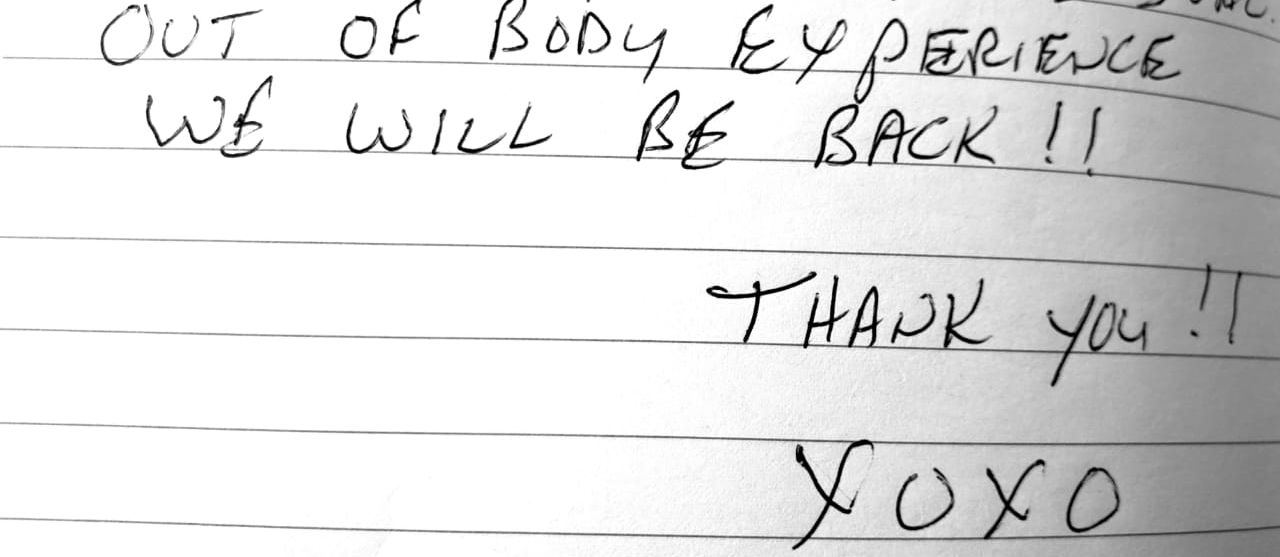 OUT OF BODY EXPERIENCE
WE WILL BE BACK!!
THANK YOU!!
XOXO